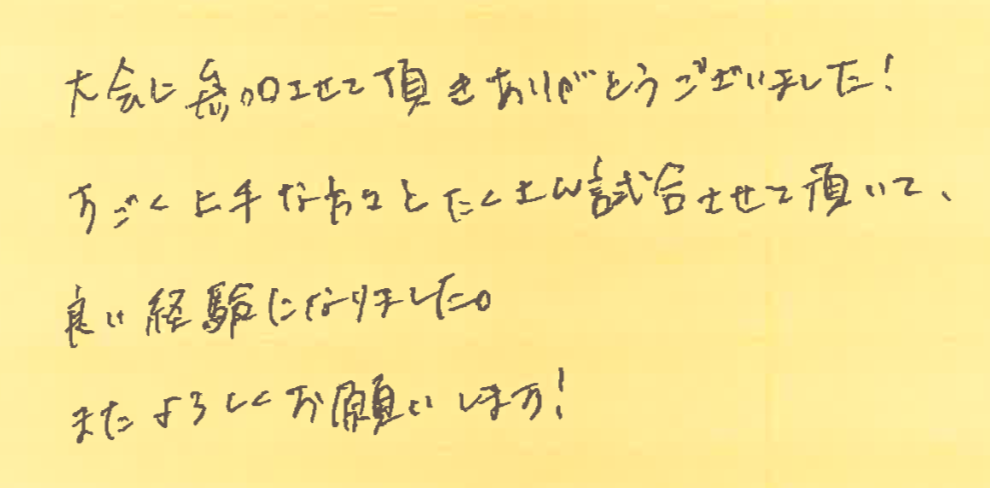 大会に参加させて頂きありがとうございました!
すごく上手な方々とたくさん試合させて頂いて、
良い経験になりました。
またよろしくお願いします!